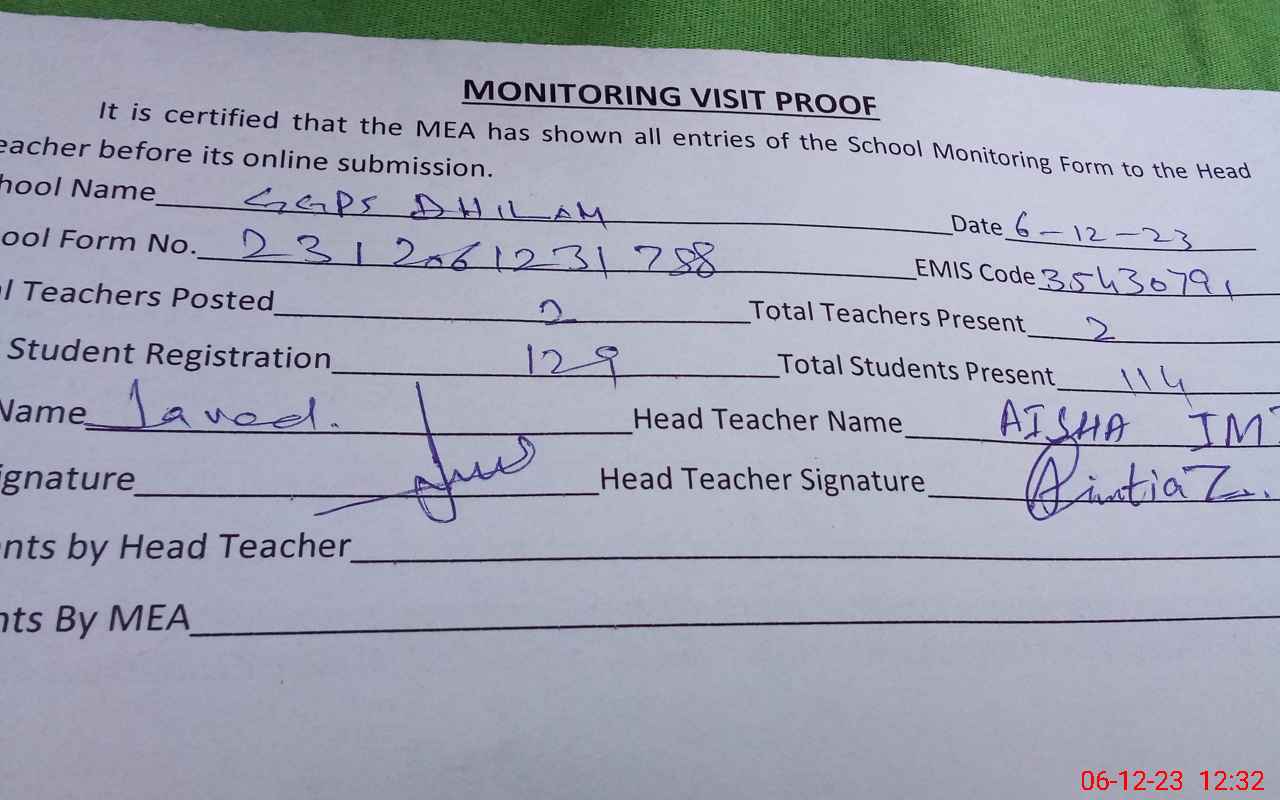 MONITORING VISIT PROOF
It is certified that the MEA has shown all entries of the School Monitoring Form to the Head
eacher before its online submission.
hool Name GGPS DHILAM Date 6-12-23
ool Form No. 2312061231788 EMIS Code 35430791
l Teachers Posted 2 Total Teachers Present 2
Student Registration 129 Total Students Present 114
Name Javed. Head Teacher Name AISHA IMT
ignature Head Teacher Signature Aimtiaz.
nts by Head Teacher
nts By MEA
06-12-23 12:32